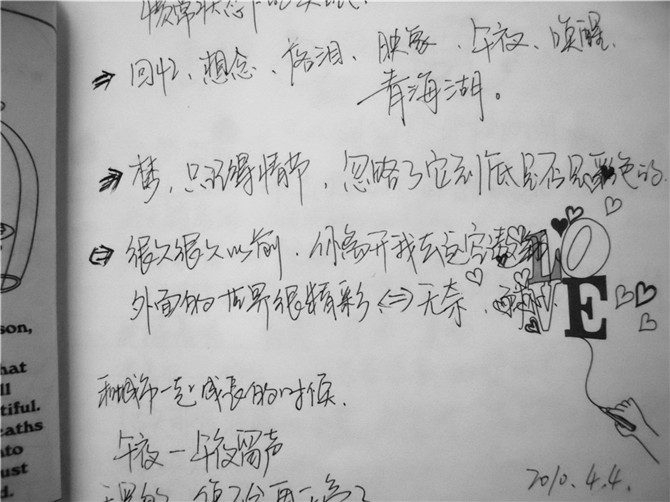 ⇒ 回忆、想念、落泪、映象、午夜、唤醒、
青海湖。
⇒ 梦，只记得情节，忽略了它到底是不是彩色的
⇒ 很久很久以前，你离开我去远空翱翔
外面的世界很精彩 <=> 无奈、
LOVE
和城市一起成长的时候、
午夜-午夜留声
2010.4.4.
son,
hat
ll
tiful.
eaths
nto
ust
d.